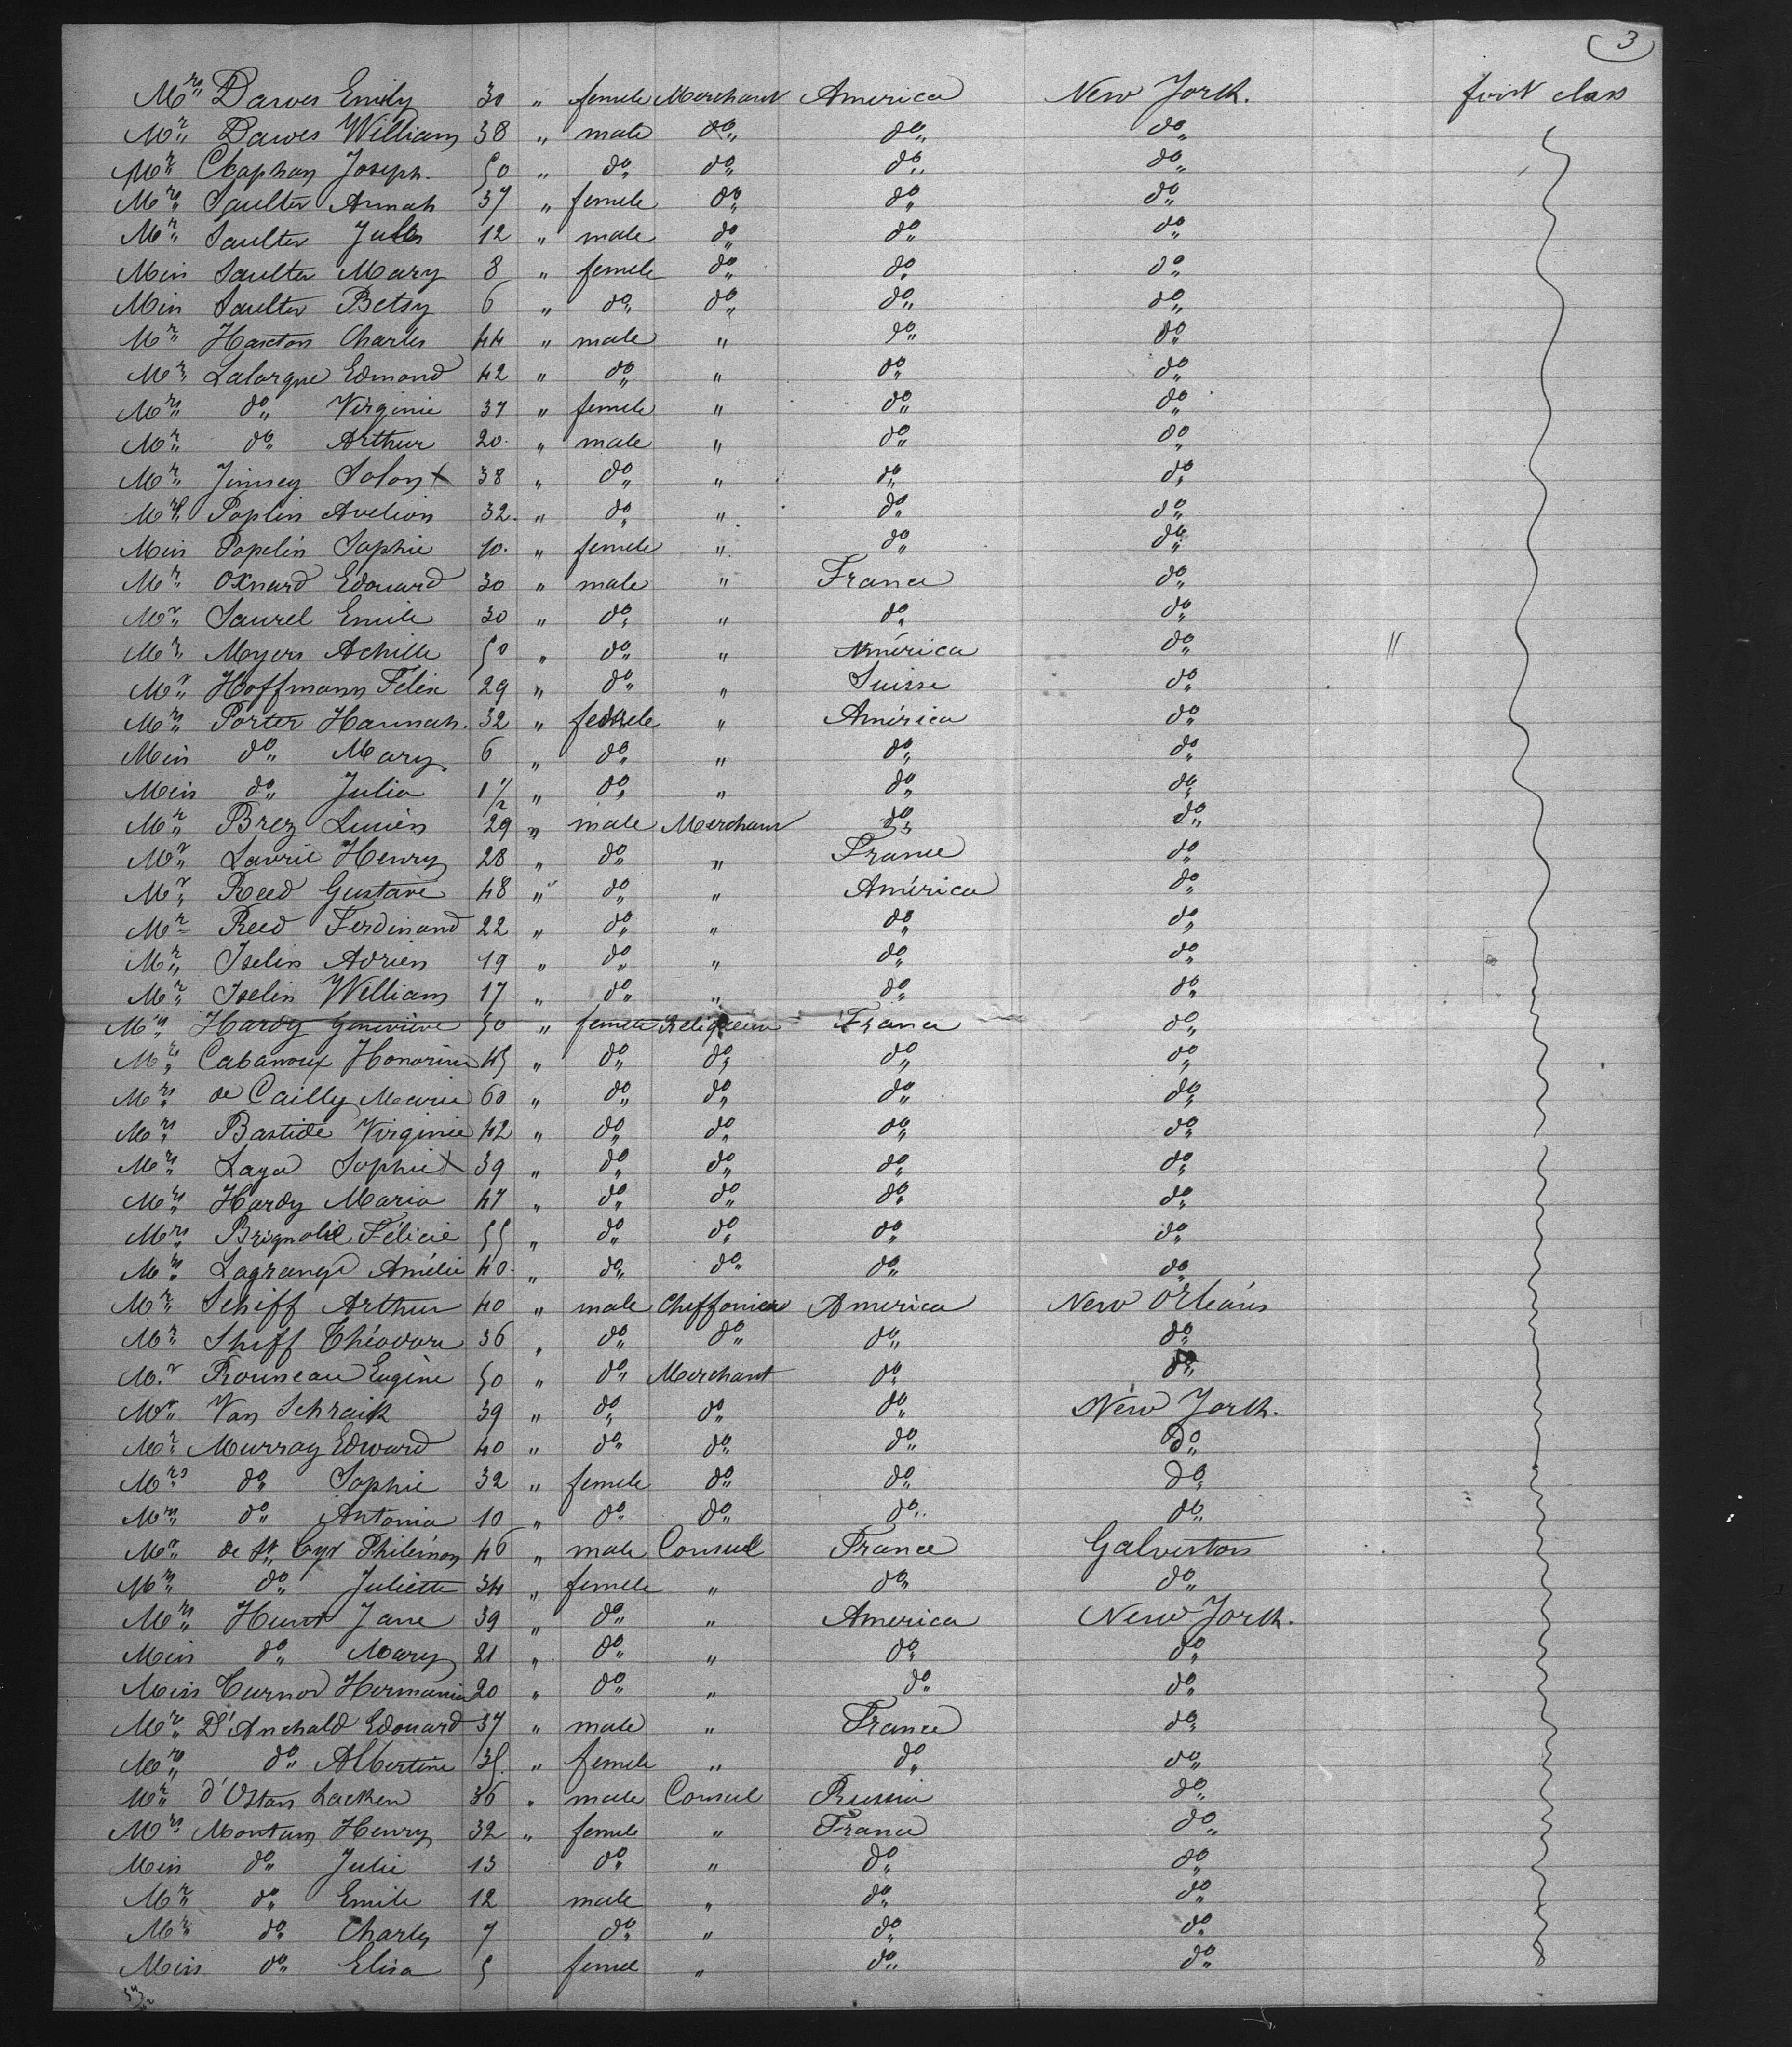 3
Mrs Dawes Emily 30 " female Merchant America New York. first class
Mr Dawes William 38 " male do do do
Mr Chaphan Joseph. 50 " do do do do
Mrs Saulter Annah 37 " female do do do
Mr Saulter Jules 12 " male do do do
Miss Saulter Mary 8 " female do do do
Miss Saulter Betsy 6 " do do do do
Mr Haxton Charles 44 " male " do do
Mr Lalorgue Edmond 42 " do " do do
Mrs do Virginie 37 " female " do do
Mr do Arthur 20. " male " do do
Mr Jimsey Solon 38 " do " do do
Mr Poplin Avelion 32. " do " do do
Miss Popelin Sophie 10. " female " do do
Mr Oxnard Edouard 30 " male " France do
Mr Saurel Emile 30 " do " do do
Mr Myers Achille 50 " do " América do "
Mr Hoffmann Félix 29 " do " Suisse do
Mrs Porter Hannah. 32 " female " América do
Miss do Mary 6 " do " do do
Miss do Julia 1 1/2 " do " do do
Mr Brez Lucien 29 " male Merchant do do
Mr Laurie Henry 28 " do " France do
Mr Reed Gustave 48 " do " América do
Mr Reed Ferdinand 22 " do " do do
Mr Iselin Adrien 19 " do " do do
Mr Iselin William 17 " do " do do
Mrs Hardy Geneviève 50 " female Religieuse France do
Mrs Cabanoux Honorine 45 " do do do do
Mrs de Cailly Marie 60 " do do do do
Mrs Bastide Virginie 42 " do do do do
Mrs Laya Sophie 39 " do do do do
Mrs Hardy Maria 47 " do do do do
Mrs Brignolie Félicie 55 " do do do do
Mrs Lagrange Amélie 40. " do do do do
Mr Schiff Arthur 40 " male Cheffonier America New Orléans
Mr Shiff Théodore 36 " do do do do
Mr Rouneau Eugène 50 " do Merchant do do
Mr Van Schraik 39 " do do do New York.
Mr Murray Edward 40 " do do do do
Mrs do Sophie 32 " female do do do
Mrs do Antonia 10 " do do do do
Mr de St Cyr Philémon 46 " male Consul France Galveston
Mrs do Juliette 34 " female " do do
Mrs Hunt Jane 39 " do " America New York.
Miss do Mary 21 " do " do do
Miss Curnod Hermania 20 " do " do do
Mr D'Anchald Edouard 37 " male " France do
Mrs do Albertine 35. " female " do do
Mr d'Ostan Lacken 36 " male Consul Russia do
Mrs Montam Henry 32 " female " France do
Miss do Julie 13 do " do do
Mr do Emile 12 male " do do
Mr do Charly 7 do " do do
Miss do Elisa 5 femel " do do